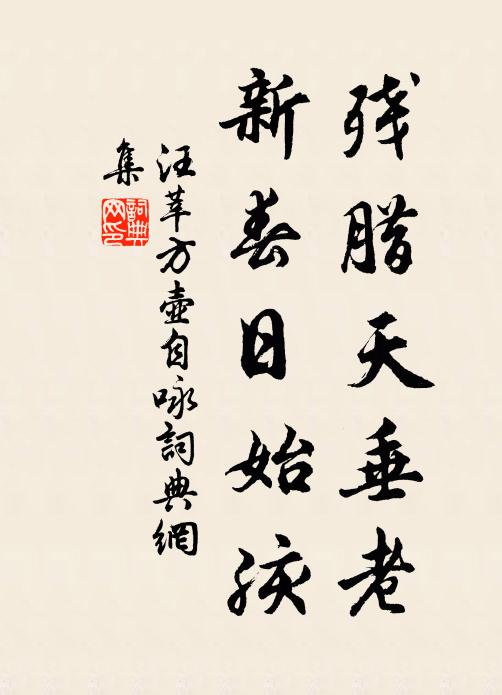 残腊天垂老
新春日始孩
汪莘方壶自咏詞典網
集
詞典网印